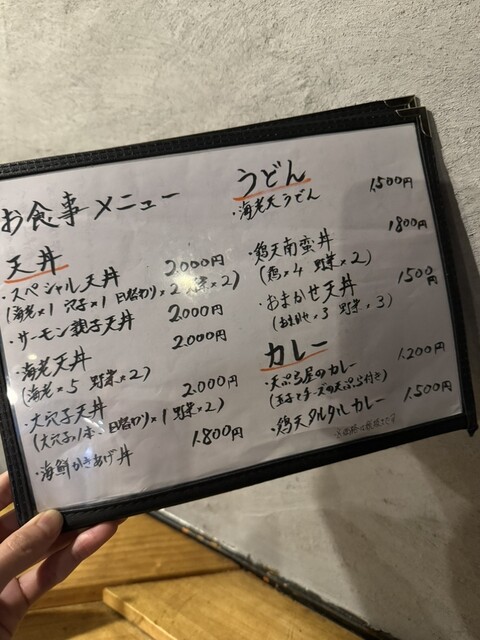 お食事メニュー
天丼
・スペシャル天丼 2.000円
(海老×1 穴子×1 日替わり×2 野菜×2)
・サーモン親子天丼 2.000円
・海老天丼 2.000円
(海老×5 野菜×2)
・大穴子天丼 2.000円
(大穴子1本 日替わり×1 野菜×2)
・海鮮かきあげ丼 1.800円
うどん
・海老天うどん 1.500円
・鶏天南蛮丼 1.800円
(鶏×4 野菜×2)
・おまかせ天丼 1.500円
(おまかせ×3 野菜×3)
カレー
・天ぷら屋のカレー 1.200円
(玉子とチーズの天ぷら付き)
・鶏天タルタルカレー 1.500円